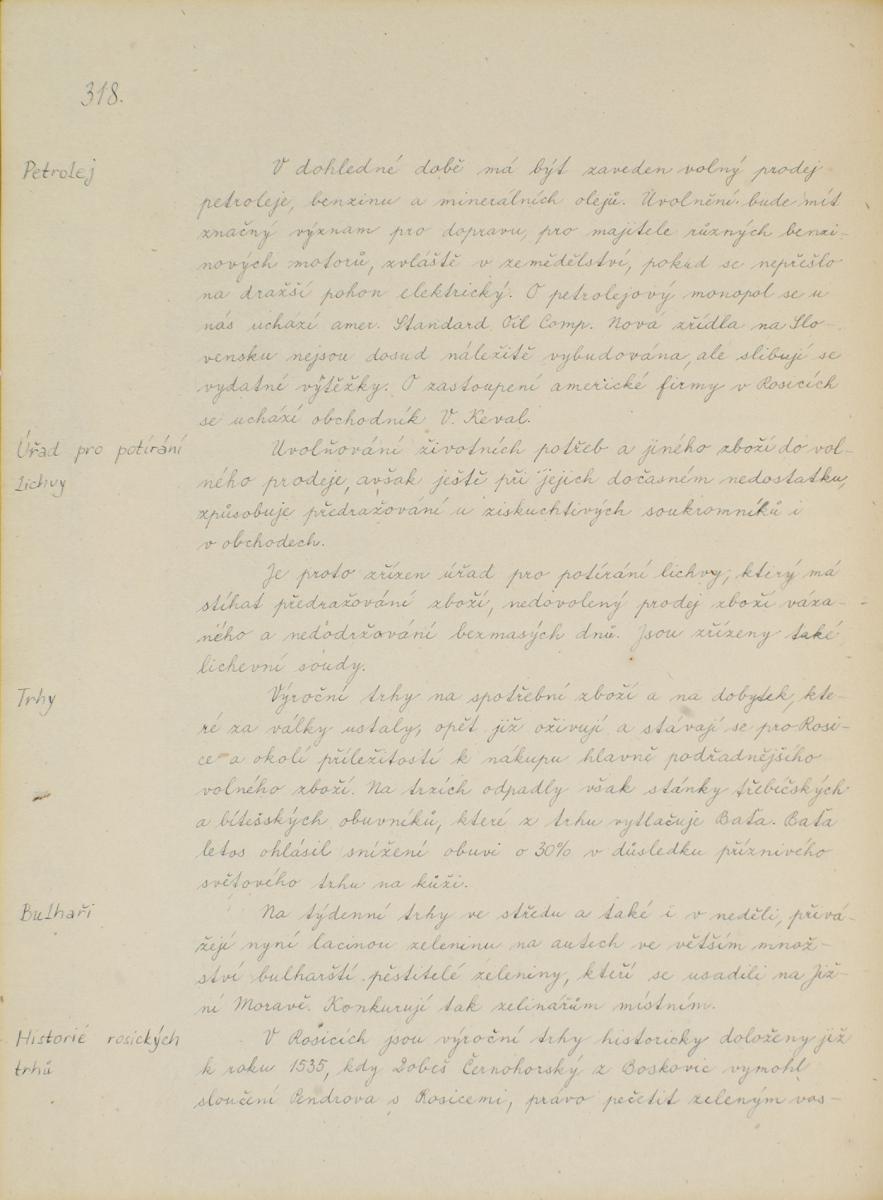 318.
Petrolej
V dohledné době má být zaveden volný prodej
petroleje, benzinu a minerálních olejů. Uvolnění bude mít
značný význam pro dopravu, pro majitele různých benzi-
nových motorů, zvláště v zemědělství, pokud se nepřešlo
na dražší pohon elektrický. O petrolejový monopol se u
nás uchází amer. Standard Oil Comp. Nová zřídla na Slo-
vensku nejsou dosud náležitě vybudována, ale slibují se
vydatné výtěžky. O zastoupení americké firmy v Rosicích
se uchází obchodník V. Keval.
Úřad pro potírání
lichvy
Uvolňování životních potřeb a jiného zboží do vol-
ného prodeje, avšak ještě při jejich dočasném nedostatku,
způsobuje předražování u ziskuchtivých soukromníků i
v obchodech.
Je proto zřízen úřad pro potírání lichvy, který má
stíhat předražování zboží, nedovolený prodej zboží váza-
ného a nedodržování bezmasých dnů. Jsou zřízeny také
lichevní soudy.
Trhy
Výroční trhy na spotřební zboží a na dobytek, kte-
ré za války ustaly, opět již oživují a stávají se pro Rosi-
ce a okolí příležitostí k nákupu hlavně podřadnějšího
volného zboží. Na trzích odpadly však stánky třebíčských
a bítešských obuvníků, které z trhu vytlačuje Baťa. Baťa
letos ohlásil snížení obuvi o 30% v důsledku příznivého
světového trhu na kůži.
Bulhaři
Na týdenní trhy ve středu a také i v neděli, přivá-
žejí nyní lacinou zeleninu na autech ve větším množ-
ství bulharští pěstitelé zeleniny, kteří se usadili na Již-
ní Moravě. Konkurují tak zelinářům místním.
Historié rosických
trhů
V Rosicích jsou výroční trhy historicky doloženy již
k roku 1535, kdy Dobeš Černohorský z Boskovic vymohl
sloučení Pendrova s Rosicemi, právo pečetit zeleným vos-